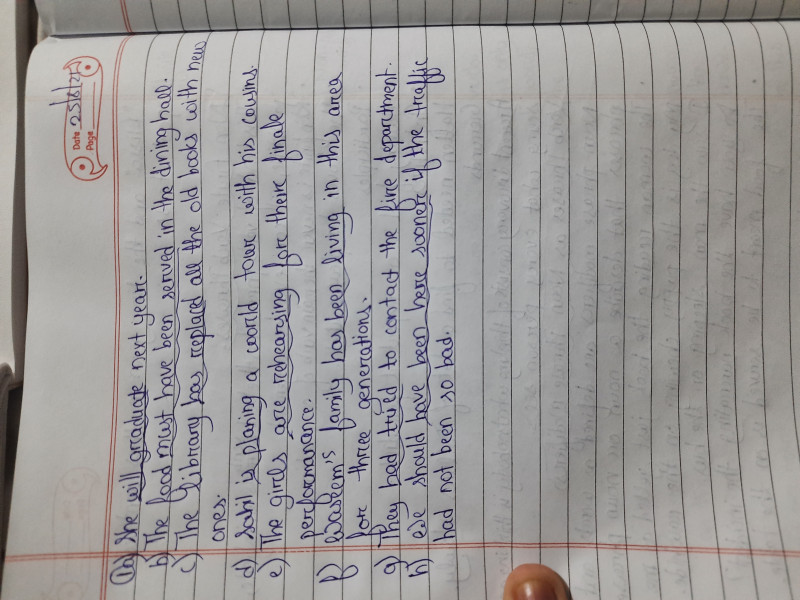 Date 25/6/25
Page
1a) She will graduate next year.
b) The food must have been served in the dining hall.
c) The library has replaced all the old books with new
ones.
d) Sahil is planing a world tour with his cousins.
e) The girls are rehearsing for there finale
performanance.
f) Waseem's family has been living in this area
for three generations.
g) They had tried to contact the fire department.
h) We should have been here sooner if the traffic
had not been so bad.